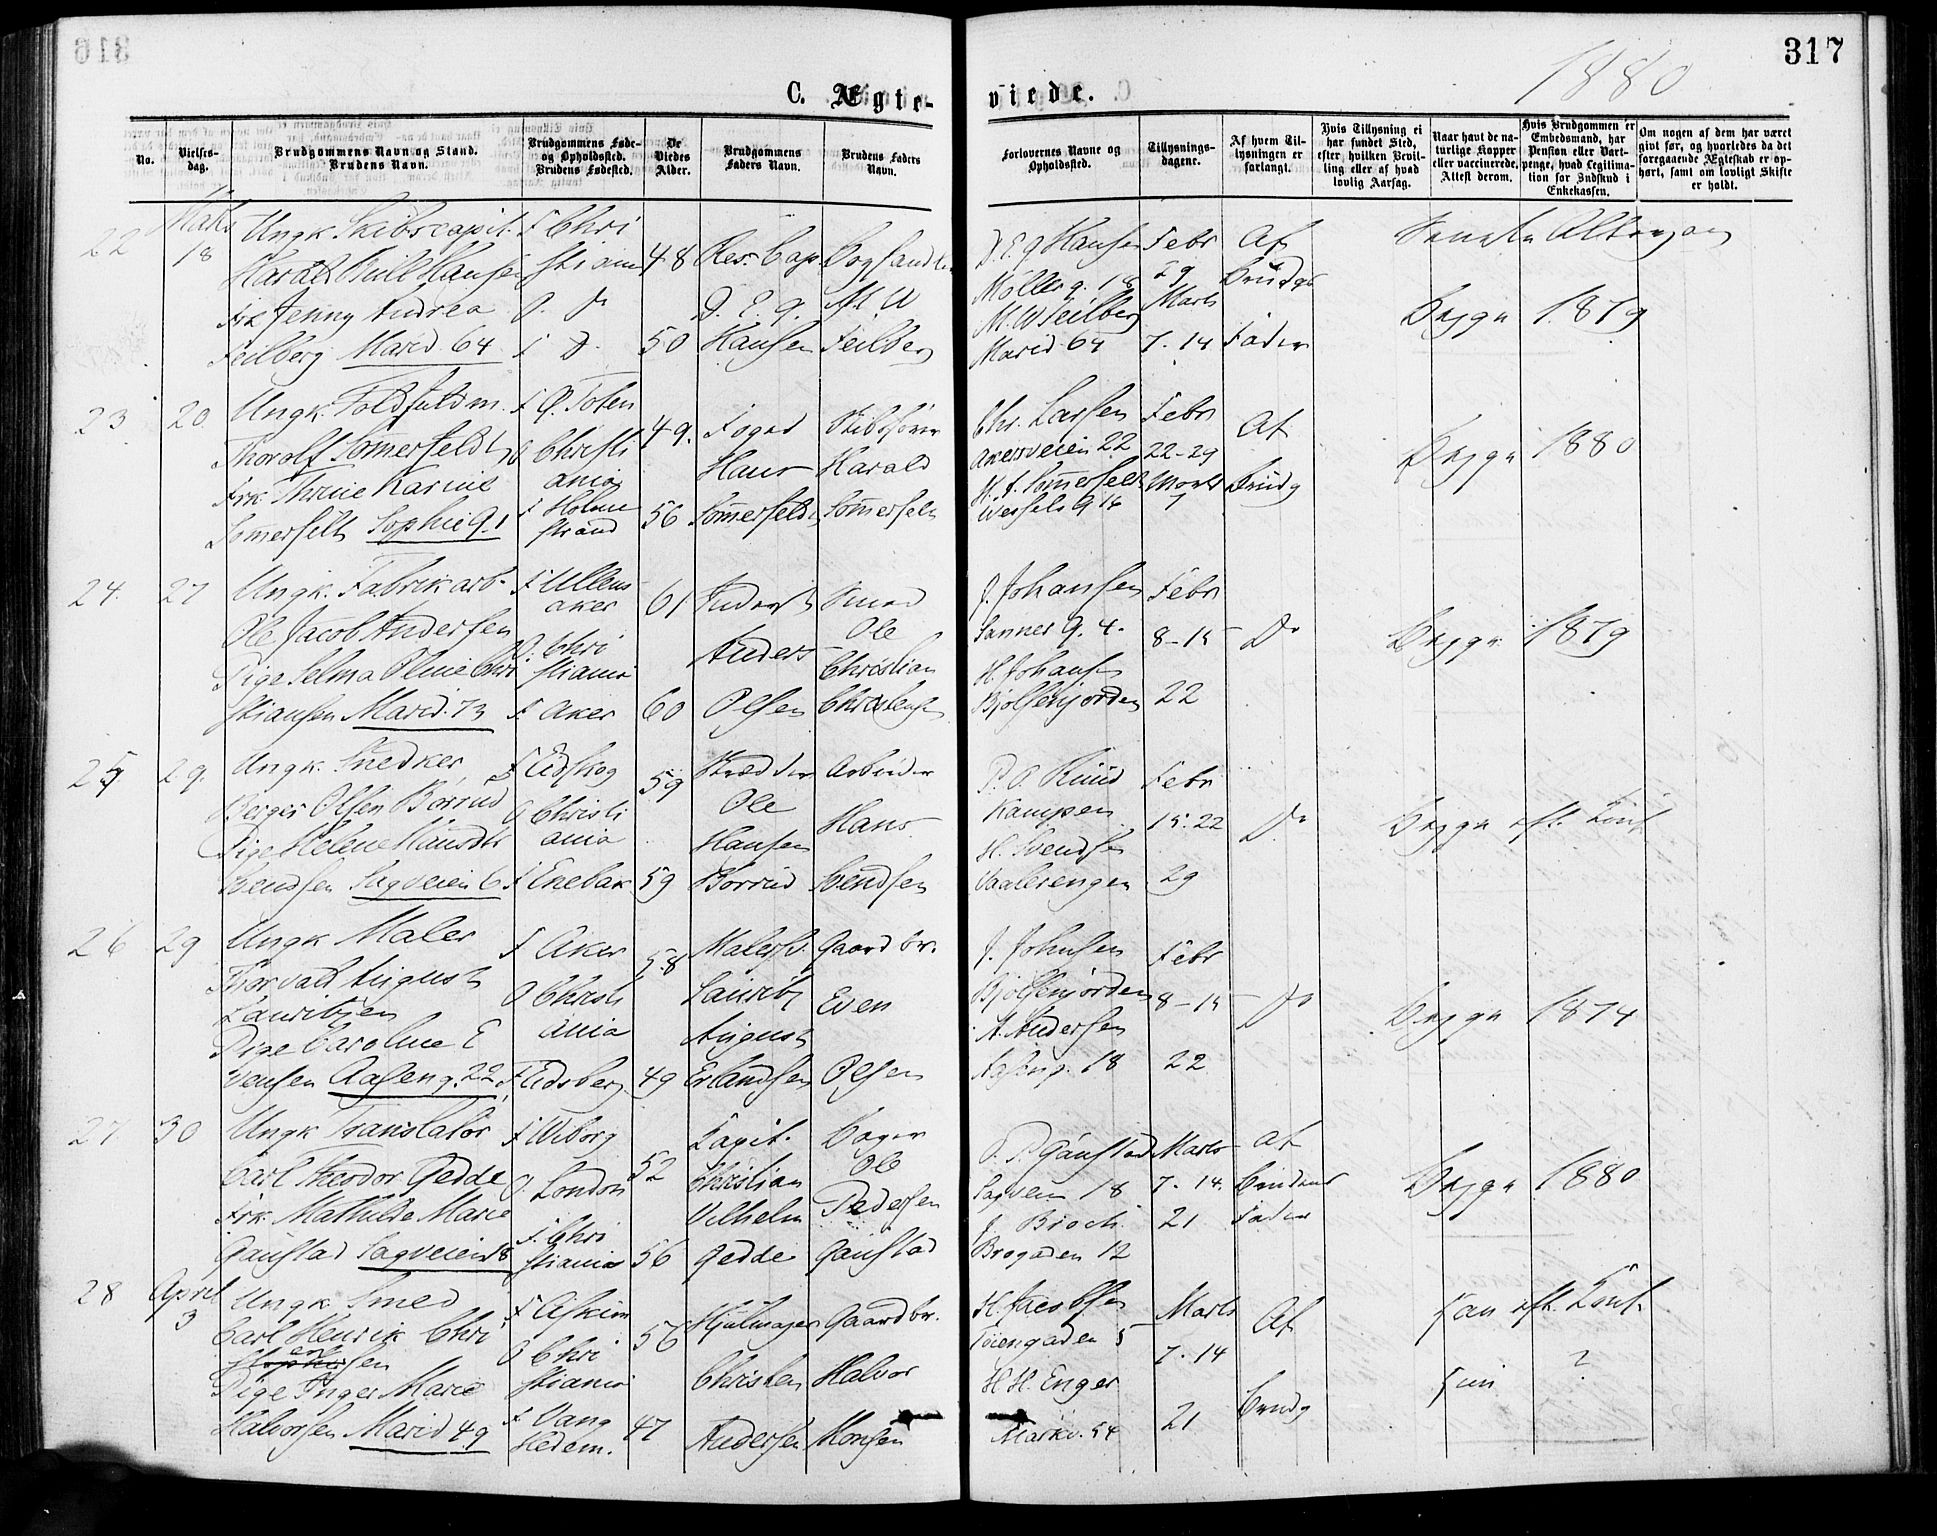 316
317
1880
C. Ægte-
viede.
No.
Vielses-
dag.
Brudgommens Navn og Stand.
Brudens Navn.
Brudgommens Føde-
og Opholdssted.
Brudens Fødested.
De
Viedes
Alder.
Brudgommens
Faders Navn.
Brudens Faders
Navn.
Forlovernes Navne og
Opholdssted.
Tillysnings-
dagene.
Af hvem Til-
lysningen er
forlangt.
Hvis Tillysning ei
har fundet Sted,
efter hvilken Bevil-
ling eller af hvad
lovlig Aarsag.
Naar havt de na-
turlige Kopper
eller vaccinerede.
Attest derom.
Hvis Brudgommen er
Embedsmand, har
Pension eller Vart-
penge, hvad Legitima-
tion for Indskud i
Enkekassen.
Om nogen af dem har været
gift før, og hvorledes da det
foregaaende Ægteskab er op-
hørt, samt om lovligt Skifte
er holdt.
22
Marts
18
Ungk. Skibscapit.
Harald Hansen
Frk Jenny Andrea
Feilberg Marid. 64
F Chri
stiania
O. Do
F Do
48
50
Res. Cap.
D. E. G.
Hansen
Boghandler
M. W
Feilberg
D. E. G Hansen
Möllerg. 18
M. W Feilberg
Marid 64
Febr
29
Marts
7-14
Af
Brudgs
Fader
Begge 1879
23
20.
Ungk. Toldfuldm.
Thorolf Somerfeldt
Frk. Thrine Karine
Somerfelt Sophie G. 1
F Ø. Toten
O Christi
ania
F Holme
strand
49.
56
Foged
Hans
Somerfeldt
Skibsfører
Harald
Somerfelt
Chr. Larsen
Akersveien 22
H. A. Somerfeldt
Wessels G 14
Febr
22-29
Marts
7
Af
Brudg
Begge 1880
24.
27
Ungk. Fabrikarb.
Ole Jacob Andersen
Pige Selma Oline Chri
stiansen Marid. 73
F Ullens
aker
O. Chri
stiania
F. Aker
61
60
Inderst
Anders
Olsen
Smed
Ole
Christian
Christensen
J. Johansen
Sanner G. 4.
H. Johansen
Bjølsenjordet
Febr
8-15
22
Do
Begge 1879
25
29.
Ungk. Snedker
Berger Olsen Borrud
Pige Helene Hansdtr
Svendsen Sagveien 6
F Eidskog
O Christi
ania
F Enebak
59
59
Skrædder
Ole
Hansen
Borrud
Arbeider
Hans
Svendsen
P. O. Ruud
Kampen
H. Svendsen
Vaalerengen
Febr
15. 22
29
Do
Begge eft. Conf.
26
29
Ungk Maler
Thorvald August
Lauritzen
Pige Caroline E
vensen Aaseng. 22
F Aker
O Christi
ania
F Eidsberg
58
49
Malersv.
Lauritz
August
Erlandsen
Gaardbr.
Even
Olsen
J. Johnsen
Bjølsenjordet
A. Andersen
Aaseng. 18
Febr
8-15
22
Do
Begge 1874
27
30
Ungk Translatør
Carl Theodor Gedde
Frk. Mathilde Marie
Gaustad Sagveien 18
F. Wiborg
O. London
F. Chri
stiania
52
56
Capit.
Christian
Vilhelm
Gedde
Bager
Ole
Pedersen
Gaustad
O. P. Gaustad
Sagveien 18
J. Broch
Brogaden 12
Marts
7-14.
21
Af
Brudens
Fader
Begge 1880
28
April
3
Ungk Smed
Carl Henrik Chri
stophersen
Pige Inger Marie
Halvorsen Marid 49
F. Askim
O Chri
stiania
F Vang
Hedem.
56
47
Hjulmager
Christen
Andersen
Gaardbr.
Halvor
Monsen
H. Jacobsen
Tøiengaden 5
H H. Enger
Markv. 54
Marts
7-14
21
Af
Brudg
Han eft. Conf.
Hun ?